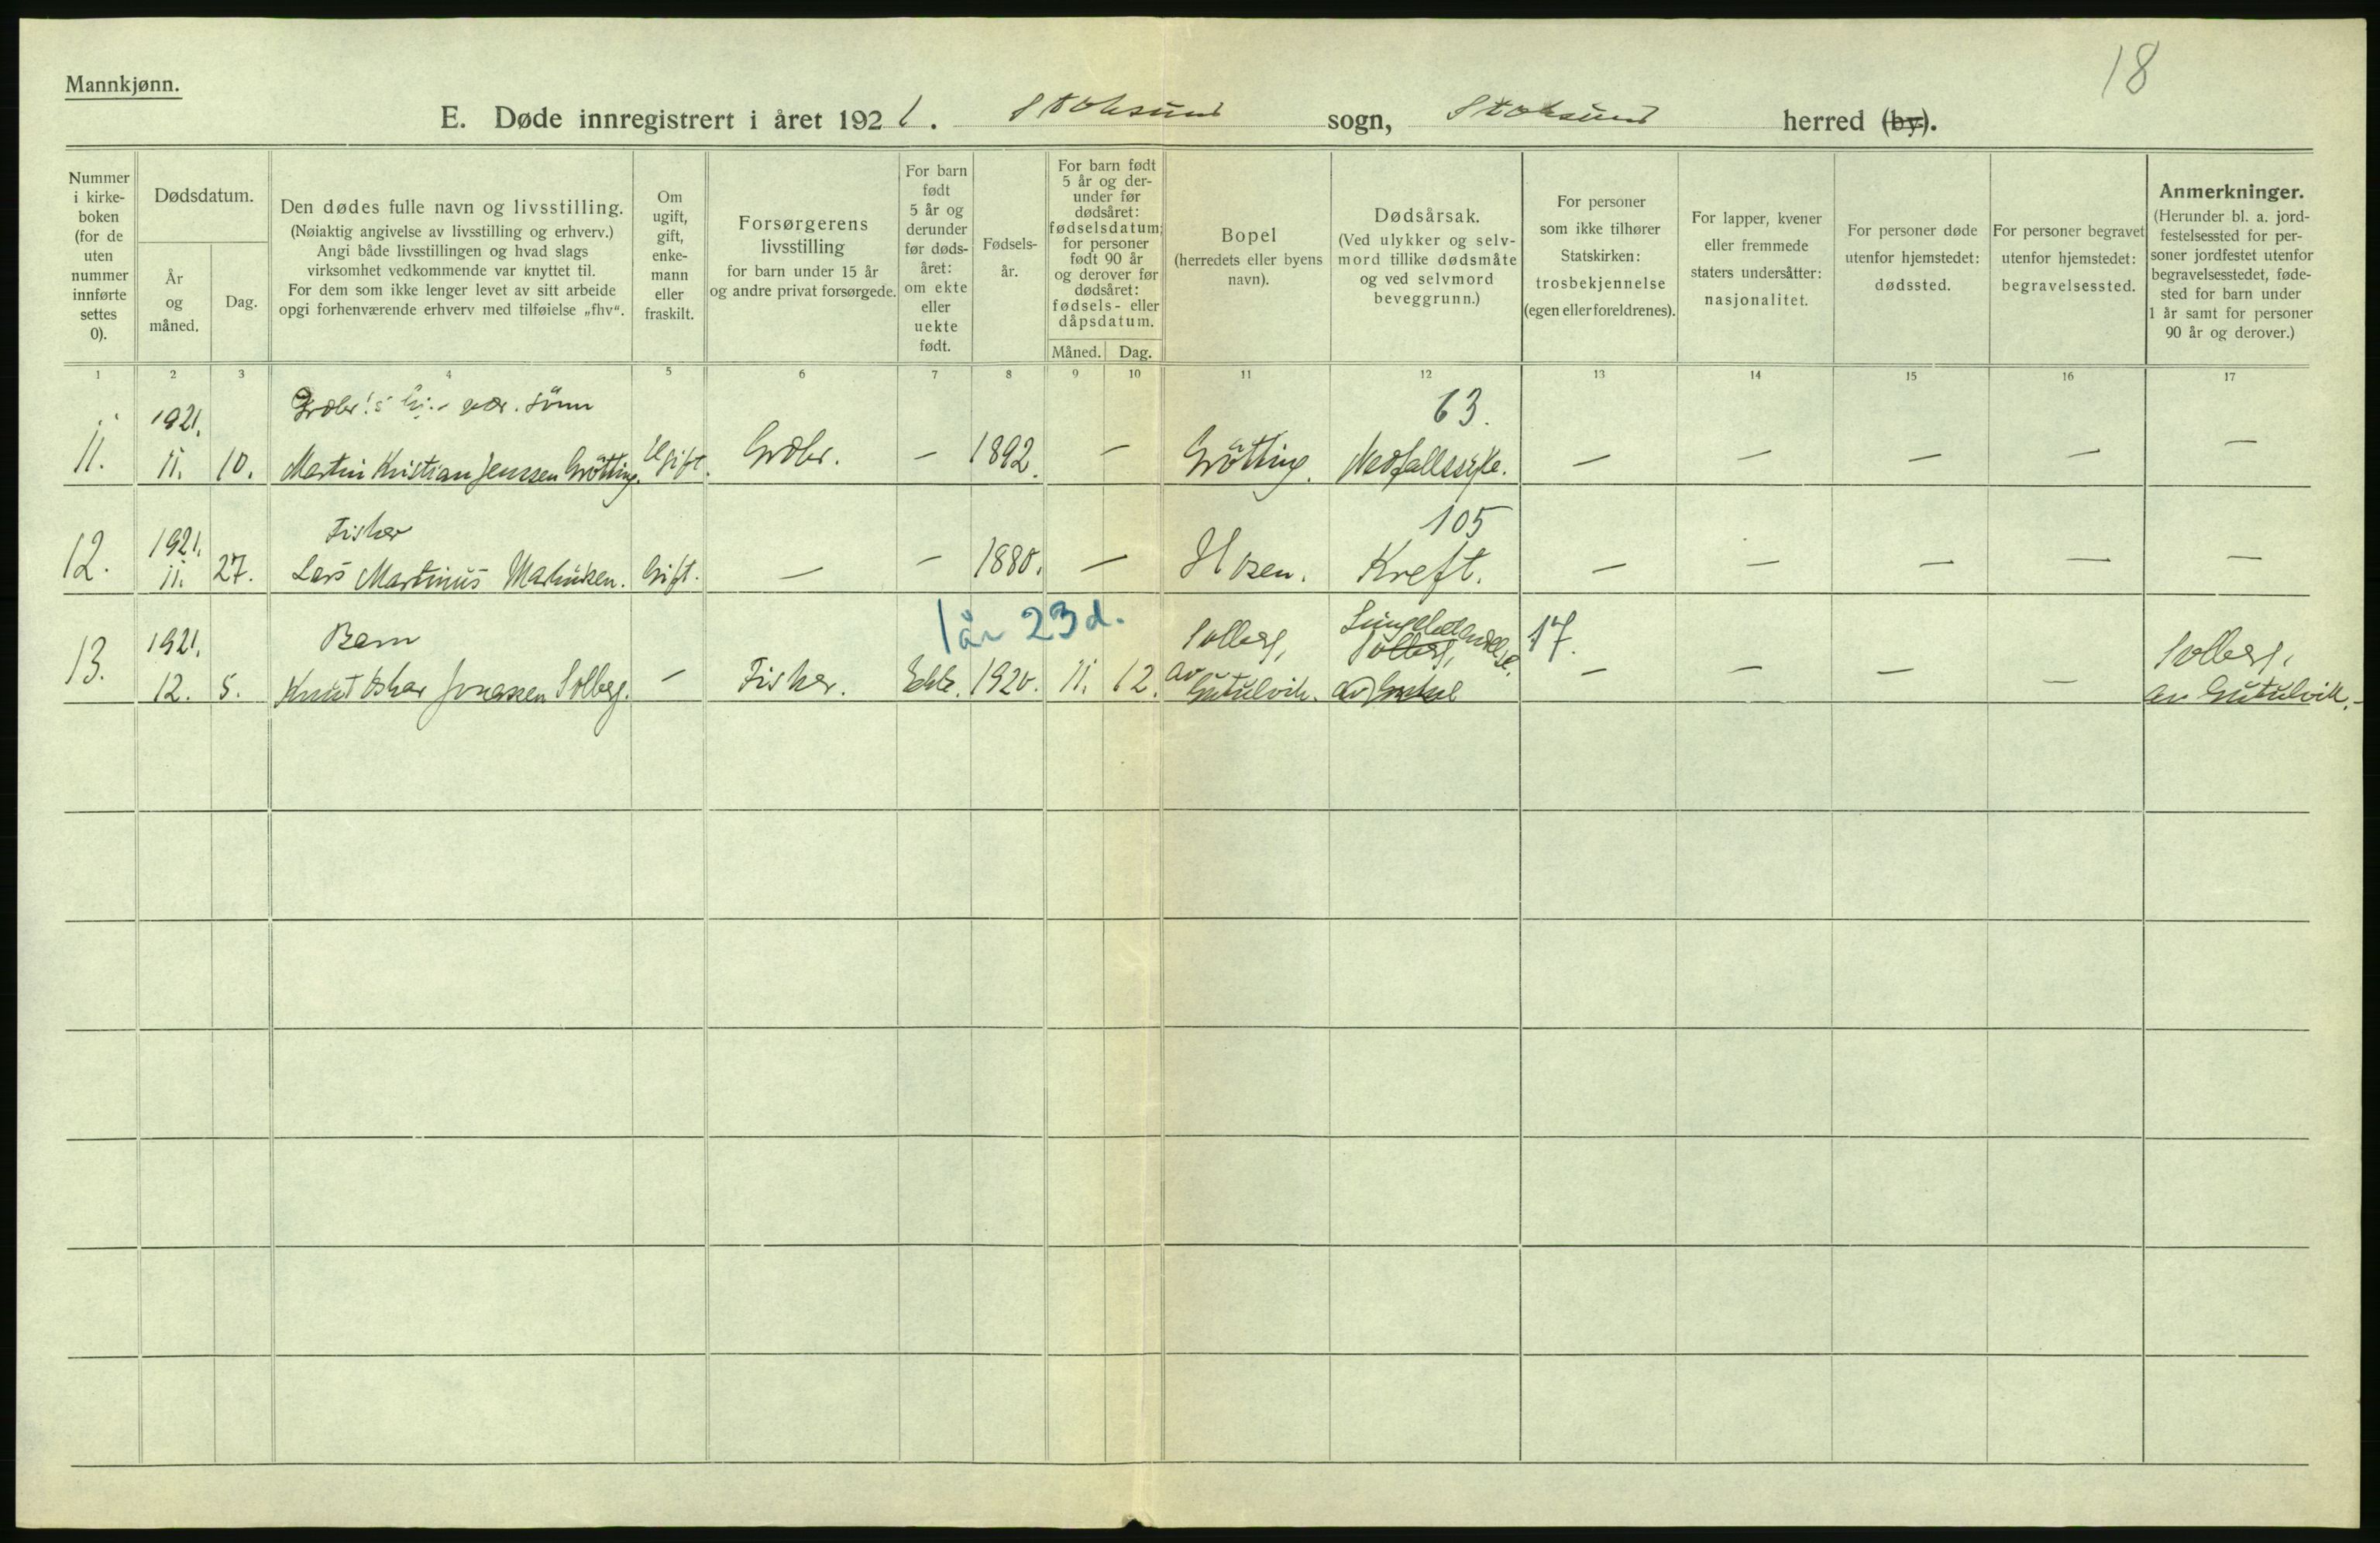 18
Mannkjønn.
E. Døde innregistrert i året 1921. Stoksund sogn, Stoksund herred (by).
Nummer
i kirke-
boken
(for de
uten
nummer
innførte
settes
0).
Dødsdatum.
År
og
måned.
Dag.
Den dødes fulle navn og livsstilling.
(Nøiaktig angivelse av livsstilling og erhverv.)
Angi både livsstillingen og hvad slags
virksomhet vedkommende var knyttet til.
For dem som ikke lenger levet av sitt arbeide
opgi forhenværende erhverv med tilføielse „fhv“.
Om
ugift,
gift,
enke-
mann
eller
fraskilt.
Forsørgerens
livsstilling
for barn under 15 år
og andre privat forsørgede.
For barn
født
5 år og
derunder
før døds-
året:
om ekte
eller
uekte
født.
Fødsels-
år.
For barn født
5 år og der-
under før
dødsåret:
fødselsdatum;
for personer
født 90 år
og derover før
dødsåret:
fødsels- eller
dåpsdatum.
Måned. Dag.
Bopel
(herredets eller byens
navn).
Dødsårsak.
(Ved ulykker og selv-
mord tillike dødsmåte
og ved selvmord
beveggrunn.)
For personer
som ikke tilhører
Statskirken:
trosbekjennelse
(egen eller foreldrenes).
For lapper, kvener
eller fremmede
staters undersåtter:
nasjonalitet.
For personer døde
utenfor hjemstedet:
dødssted.
For personer begravet
utenfor hjemstedet:
begravelsessted.
Anmerkninger.
(Herunder bl. a. jord-
festelsessted for per-
soner jordfestet utenfor
begravelsesstedet, føde-
sted for barn under
1 år samt for personer
90 år og derover.)
1 2 3 4 5 6 7 8 9 10 11 12 13 14 15 16 17
1921. sønn 63.
11. 11. 10. Martin Kristian Jenssen Grötting. Ugift. Grdbr. — 1892. — Grötting. Nedfallssyke. — — — — —
1921. Fisker 105
12. 11. 27. Lars Martinus Martinsen. Gift. — — 1880. — Hosen. Kreft. — — — — —
1 år 23 d.
1921. Barn Solberg, Lungebetendelse. Solberg, 17. Solberg,
13. 12. 5. Knut Oskar Jonassen Solberg. — Fisker. Ekte. 1920. 11. 12. av Gutulvik. av — — — — av Gutulvik.